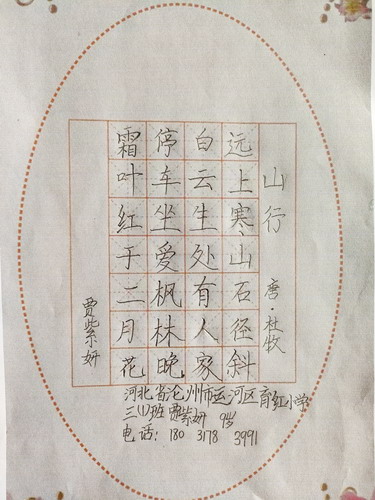 山行 唐·杜牧
远上寒山石径斜
白云生处有人家
停车坐爱枫林晚
霜叶红于二月花
贾紫妍
河北省沧州市运河区育红小学
三(1)班 贾紫妍 9岁
电话：180 3178 3991